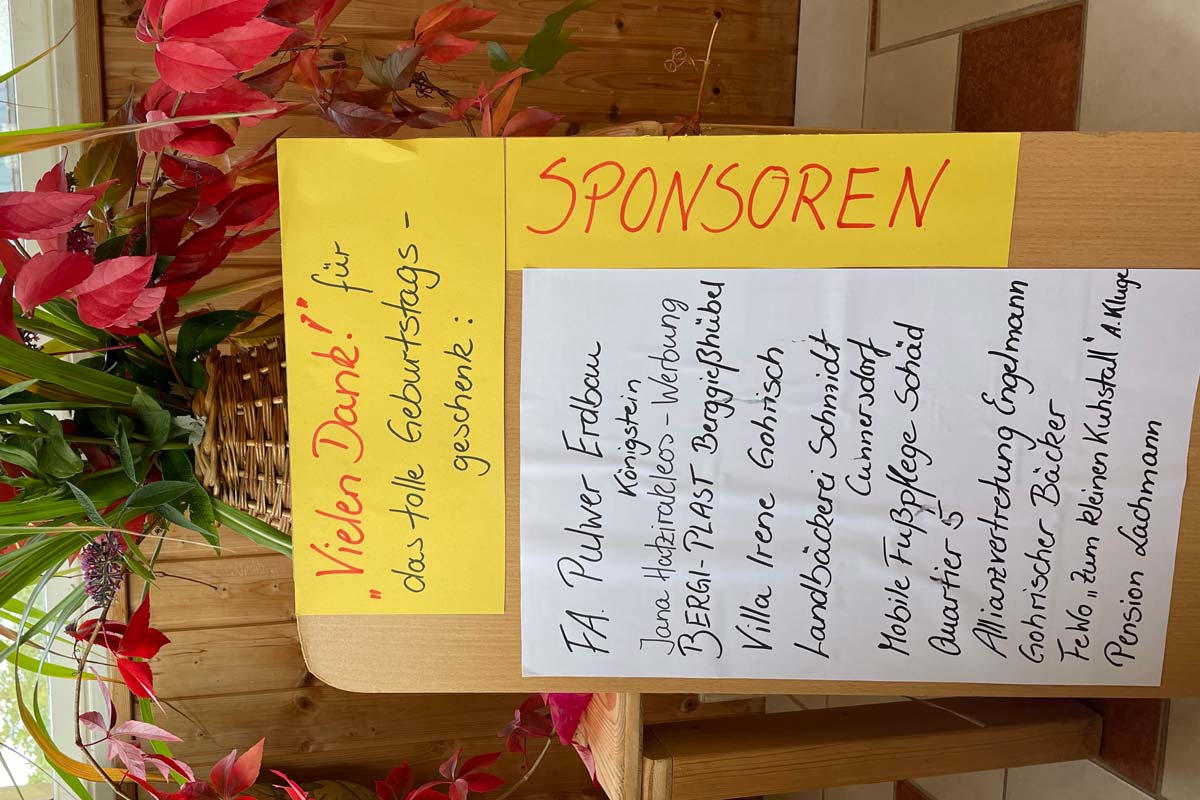 "Vielen Dank!" für
das tolle Geburtstags-
geschenk:
SPONSOREN
FA. Pulwer Erdbau
Königstein
Jana Hatziraleos-Werbung
BERGI-PLAST Berggießhübel
Villa Irene Gohrisch
Landbäckerei Schmidt
Cunnersdorf
Mobile Fußpflege Schäd
Quartier 5
Allianzvertretung Engelmann
Gohrischer Bäcker
FeWo „Zum kleinen Kuhstall" A. Kluge
Pension Lachmann